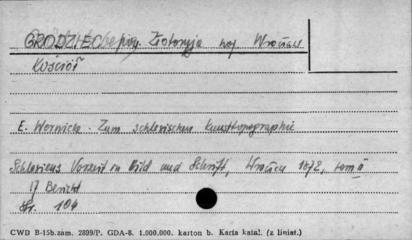 GRODZIEC pow. Złotoryja woj. Wrocław
Kościół
E. Wernicke. Zum schlesischen Kunsttopographie
Schlesiens Vorzeit in Bild und Schrift, 1872, tom II
17 Bericht
Str. 104
CWD B-15b. zam. 2899/P. GDA-8. 1.000.000. karton b. Karta katal. (z liniat.)